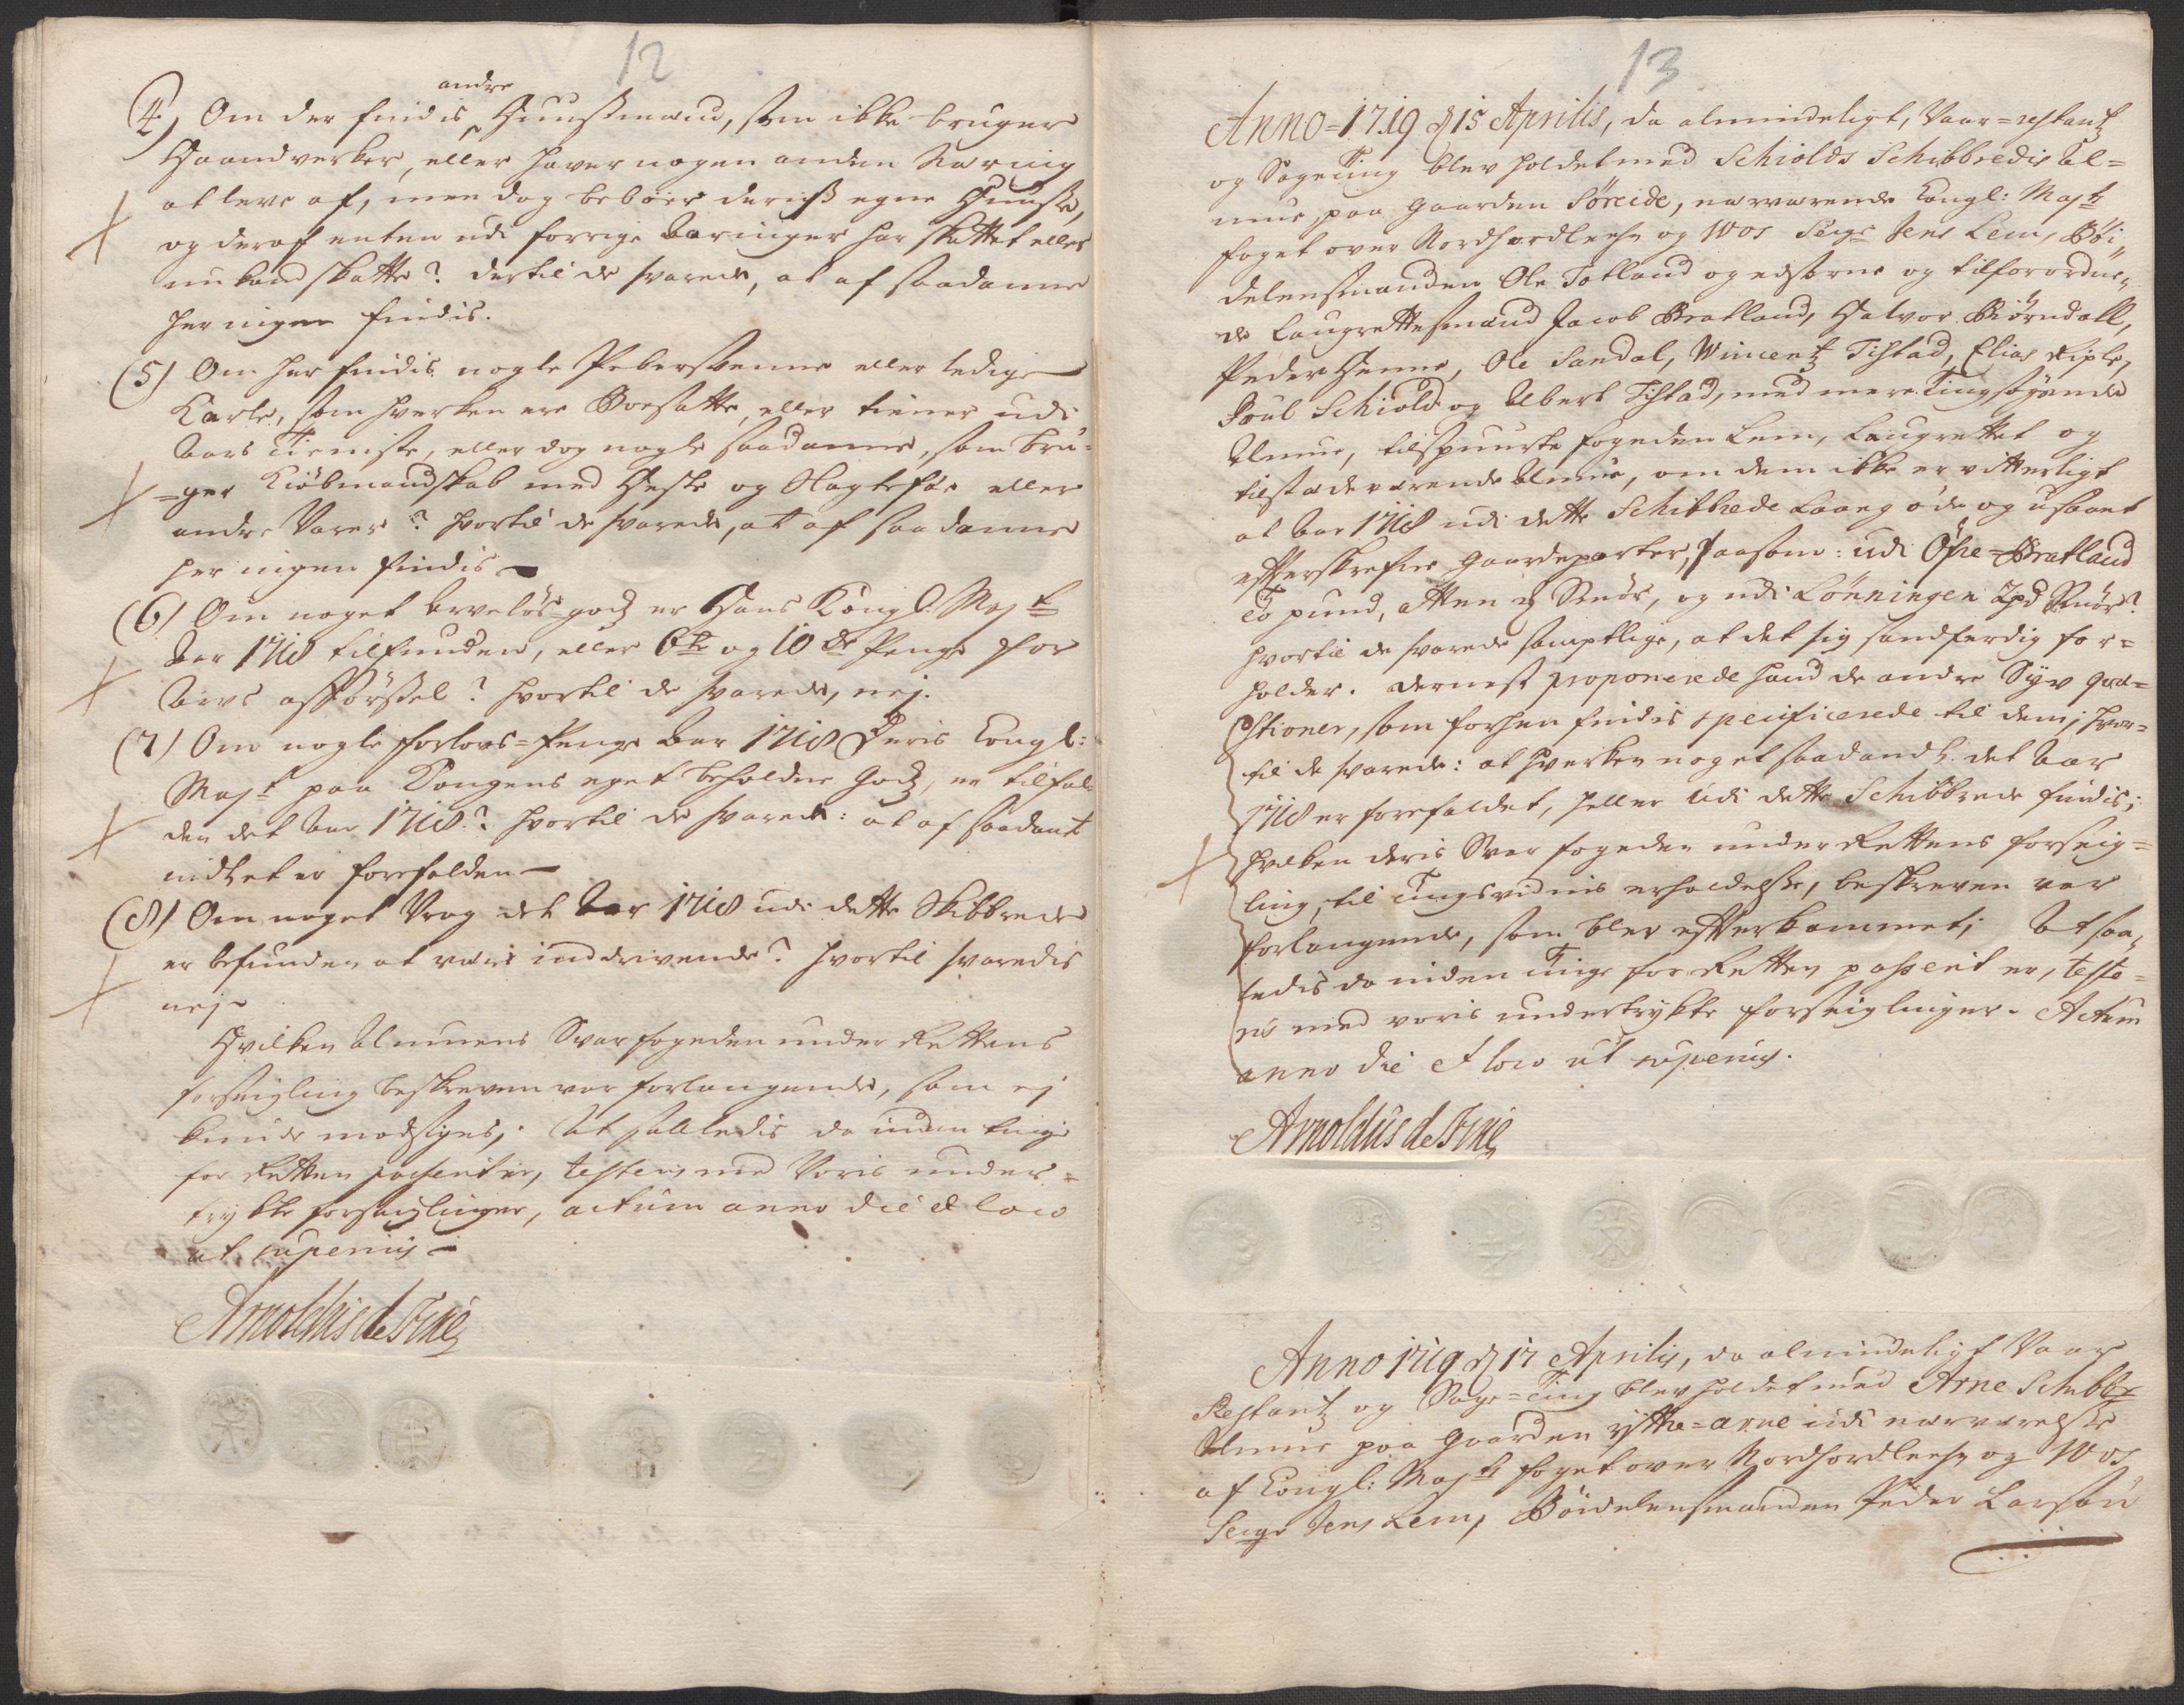 12
andre
4) Om der findis Huusmænd, som ikke bruger
Haandverker, eller haver nogen anden Næring
at leve af, men dog beboer deriss egne Huusse,
og deraf enten udi forrige Aaringer har skattet eller
nu kand skatte? dertil de svarede, at af saadanne
her ingen findis.
(5) Om her findis nogle Pebersvenne eller ledige
Karle, som hverken ere Boesatte, eller tiener udi
Aars Tieniste, eller dog nogle saadanne, som bru-
=ger Kiøbmandskab med Heste og Slagtefæ eller
andre Varer? hvortil de svarede, at af saadanne
her ingen findis
(6) Om noget arveløs godz er Hans Kongl: Majt
Aar 1718 tilfunden, eller 6te og 10de Penge for
Arvs udførssel? hvortil de svarede, nej.
(7) Om nogle forlovs=Penge Aar 1718 Deris Kongl:
Majt paa Kongens eget beholdne Godz, er tilfal-
den det Aar 1718? hvortil de svarede: at af saadant
indtet er forefalden
(8) Om noget Vrag det Aar 1718 udi dette Skibbrede
er befunden at være inddrivende? hvortil svaredis
nej
Hvilken Almuens Svar fogeden under Rettens
forseigling beskreven var forlangende, som ej
kunde modsiges; At saaledis da inden tinge
for Retten passerit er, testerer med Voris under=
trykte forseiglinger, actum anno die et loco
ut supra
Arnoldus de Fine
13
Anno=1719 d 15 Aprilis, da almindeligt, Vaar=restantz
og Sageting blev holdet med Schiolds Schibbredis Al=
mue, paa gaarden Søreide, nærværende Kongl: Mayts
foget over Nordhordlehn og Wos Seigr Jens Lem, Bøi=
delensmanden Ole Totland og edsorne og tilforordne=
de Laugrettesmænd Jacob Bratland, Halvor Biørndall,
Peder Henne, Ole Sandal, Wincentz Tistad, Elias Riple,
Poul Schiold og Albert Tistad, med mere Tingsøgende
Almue, tilspuurte fogeden Lem, Laugrettet og
tilstædeværende Almue, om dem ikke er vitterligt
at Aar 1718 udi dette Schibbrede laae øde og usaaet
efterskrefne gaardeparter, saasom: udi Øfre=Bratland
To pund, Otten Smør, og udi Lønningen 2pd Smør?
hvortil de svarede samptlige, at det sig sandferdig for=
holder. dernest proponerede hand de andre Syv quæ=
stioner, som forhen findis specificerede til dem; hvor=
til de svarede: at hverken noget saadandt det Aar
1718 er forefaldet, heller udi dette Schibbrede findis;
hvilken deris Svar fogeden under Rettens forseig=
ling, til Tingsvidnis erholdelse, beskreven var
forlangende, som blev efterkommet; At saa=
ledis da inden Tinge for Retten passerit er, teste=
ris med voris undertrykte forseiglinger. Actum
anno die et loco ut supra.
Arnoldus de Fine
Anno 1719 d 17 Aprilis, da almindeligt Vaar
Restantz og Sage=Ting blev holdet med Arne Schibbr
Almue paa gaarden ytre=arne udi nærværelse
af Kongl: Mayts foget over Nordhordlehn og Wos
Seigr Jens Lem, Bøidelensmanden Peder Larsen